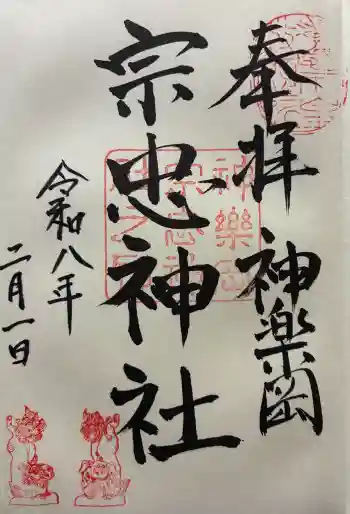 奉拝 神楽岡
宗忠神社
令和八年
二月一日
神樂岡
宗忠神